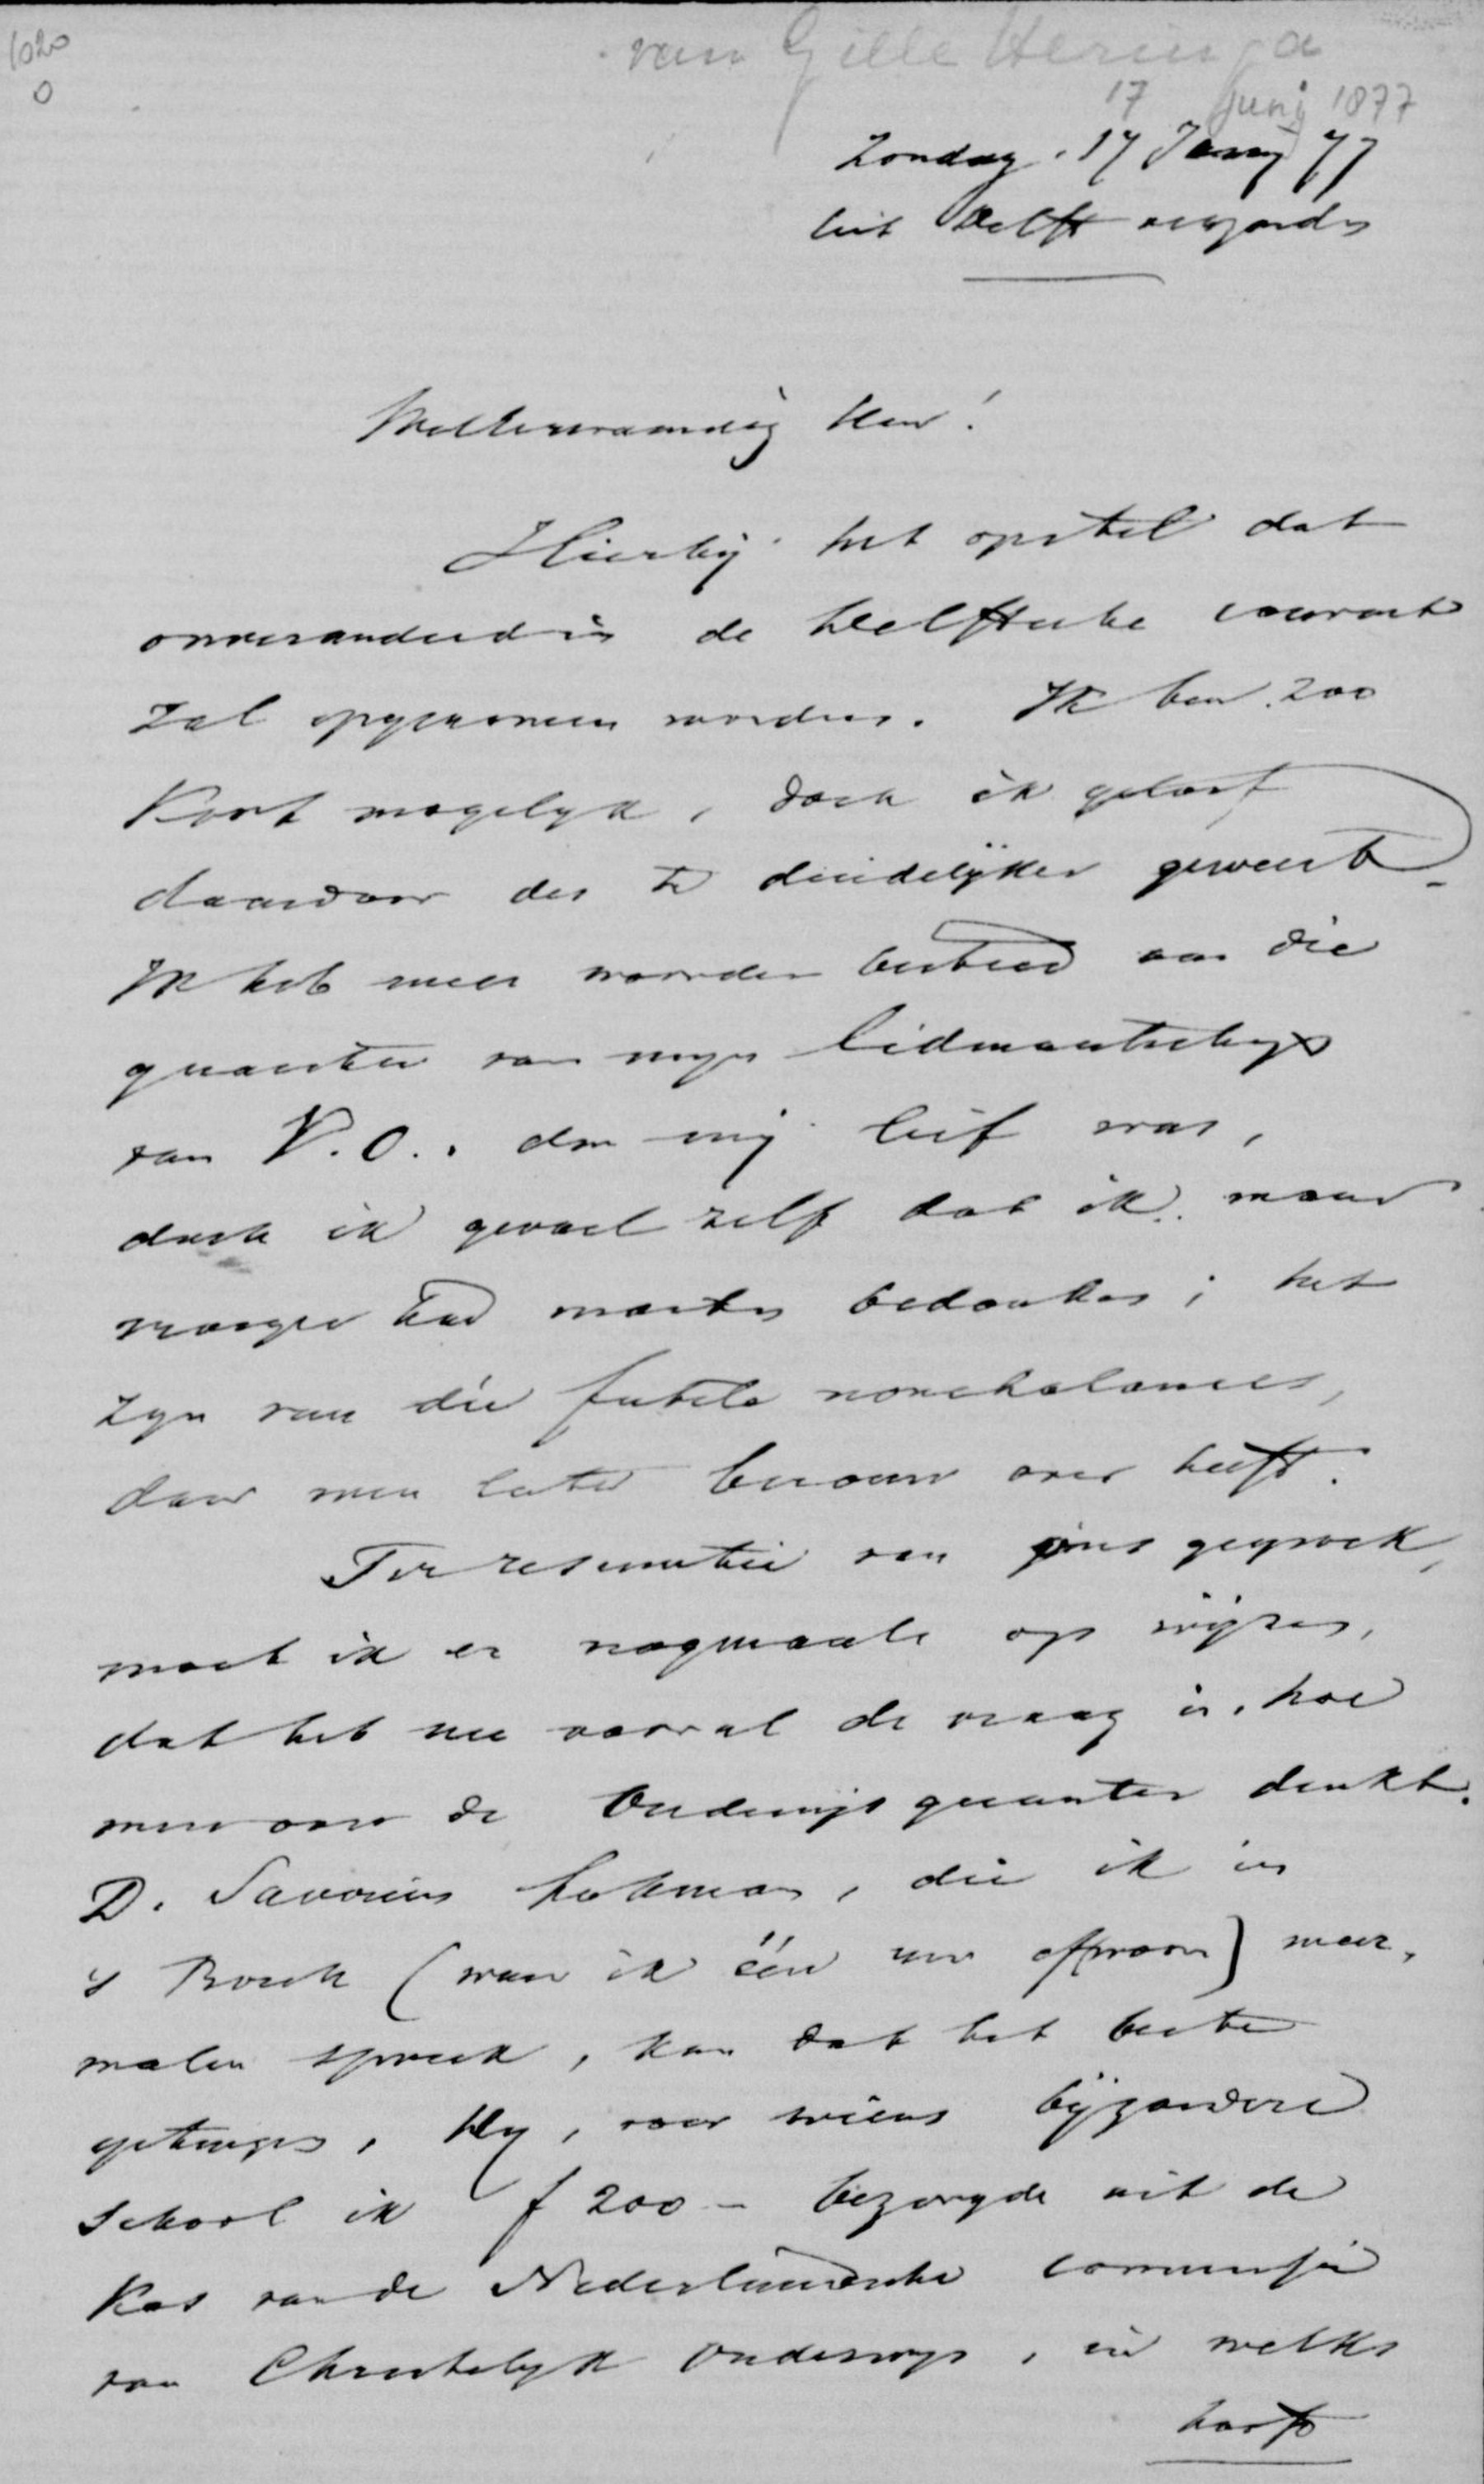 1020
0
van Gille Heringa
17 Juni 1877
Zondag. 17 Juny 77
uit Delft
WelEerwaardig Heer!
Hierbij het opstel dat
onveranderd in de Delftsche courant
zal opgenomen worden. Ik ben zoo
kort mogelyk, doch ik geloof
daardoor des te duidelÿker geweest.
Ik heb meer woorden besteed aan die
quaestie van myn lidmaatschap
van V.O. dan mij lief was,
doch ik gevoel zelf dat ik maar
vroeger had moeten bedanken; het
zyn van die futele nonchalances,
daar men later berouw over heeft.
Ter resumtie van ons gesprek,
moet ik er nogmaals op wijzen,
dat het nu vooral de vraag is, hoe
men over de Onderwijs quaestie denkt.
D. Savornin Lohman, die ik in
's Bosch (waar ik één uur afwoon) meer-
malen spreek, kan dat het beste
getuigen, Hy, voor wiens bÿzondere
School ik f 200 - bezorgde uit de
Kas van de Nederlandsche commissie
van Christelyk Onderwys, in welks